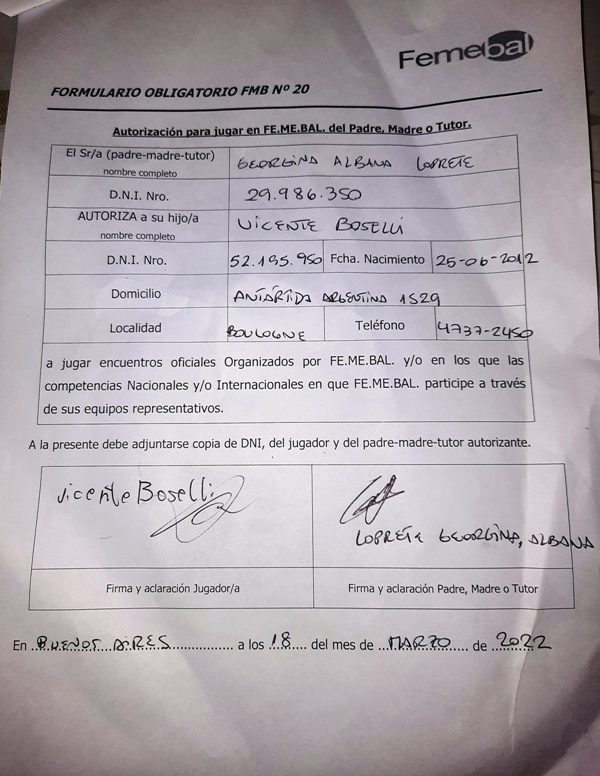 Femebal
FORMULARIO OBLIGATORIO FMB Nº 20
Autorización para jugar en FE.ME.BAL. del Padre, Madre o Tutor.
El Sr/a (padre-madre-tutor)
nombre completo
GEORGINA ALBANA LOPRETE
D.N.I. Nro.
29.986.350
AUTORIZA a su hijo/a
nombre completo
VICENTE BOSELLI
D.N.I. Nro. 52.195.950 Fcha. Nacimiento 25-06-2012
Domicilio ANTÁRTIDA ARGENTINA 1529
Localidad BOULOGNE Teléfono 4737-2450
a jugar encuentros oficiales Organizados por FE.ME.BAL. y/o en los que las
competencias Nacionales y/o Internacionales en que FE.ME.BAL. participe a través
de sus equipos representativos.
A la presente debe adjuntarse copia de DNI, del jugador y del padre-madre-tutor autorizante.
Vicente Boselli
LOPRETE GEORGINA, ALBANA
Firma y aclaración Jugador/a
Firma y aclaración Padre, Madre o Tutor
En ..BUENOS AIRES................. a los .18.. del mes de ...MARZO..... de ..2022